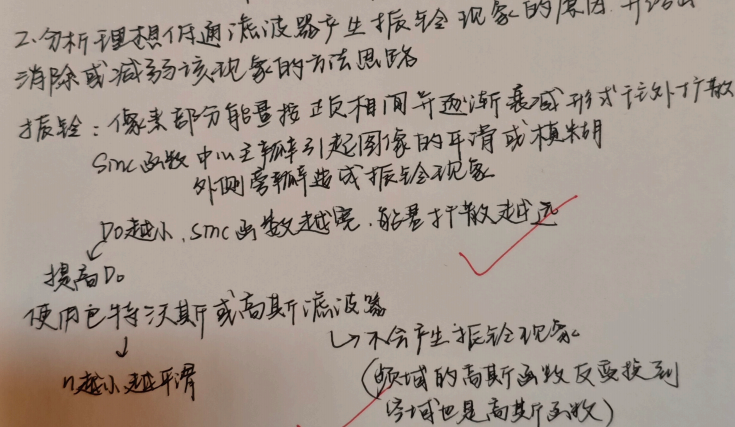 2.分析理想低通滤波器产生振铃现象的原因,并给出
消除或减弱该现象的方法思路
振铃:像素部分能量按正负相间并逐渐衰减形式往外扩散
Sinc函数中心主瓣引起图像的平滑或模糊
外侧旁瓣造成振铃现象
D0越小,sinc函数越宽,能量扩散越远
提高D0
使用巴特沃斯或高斯滤波器
↓ ↳不会产生振铃现象
n越小越平滑 (频域的高斯函数反变换到
空域也是高斯函数)